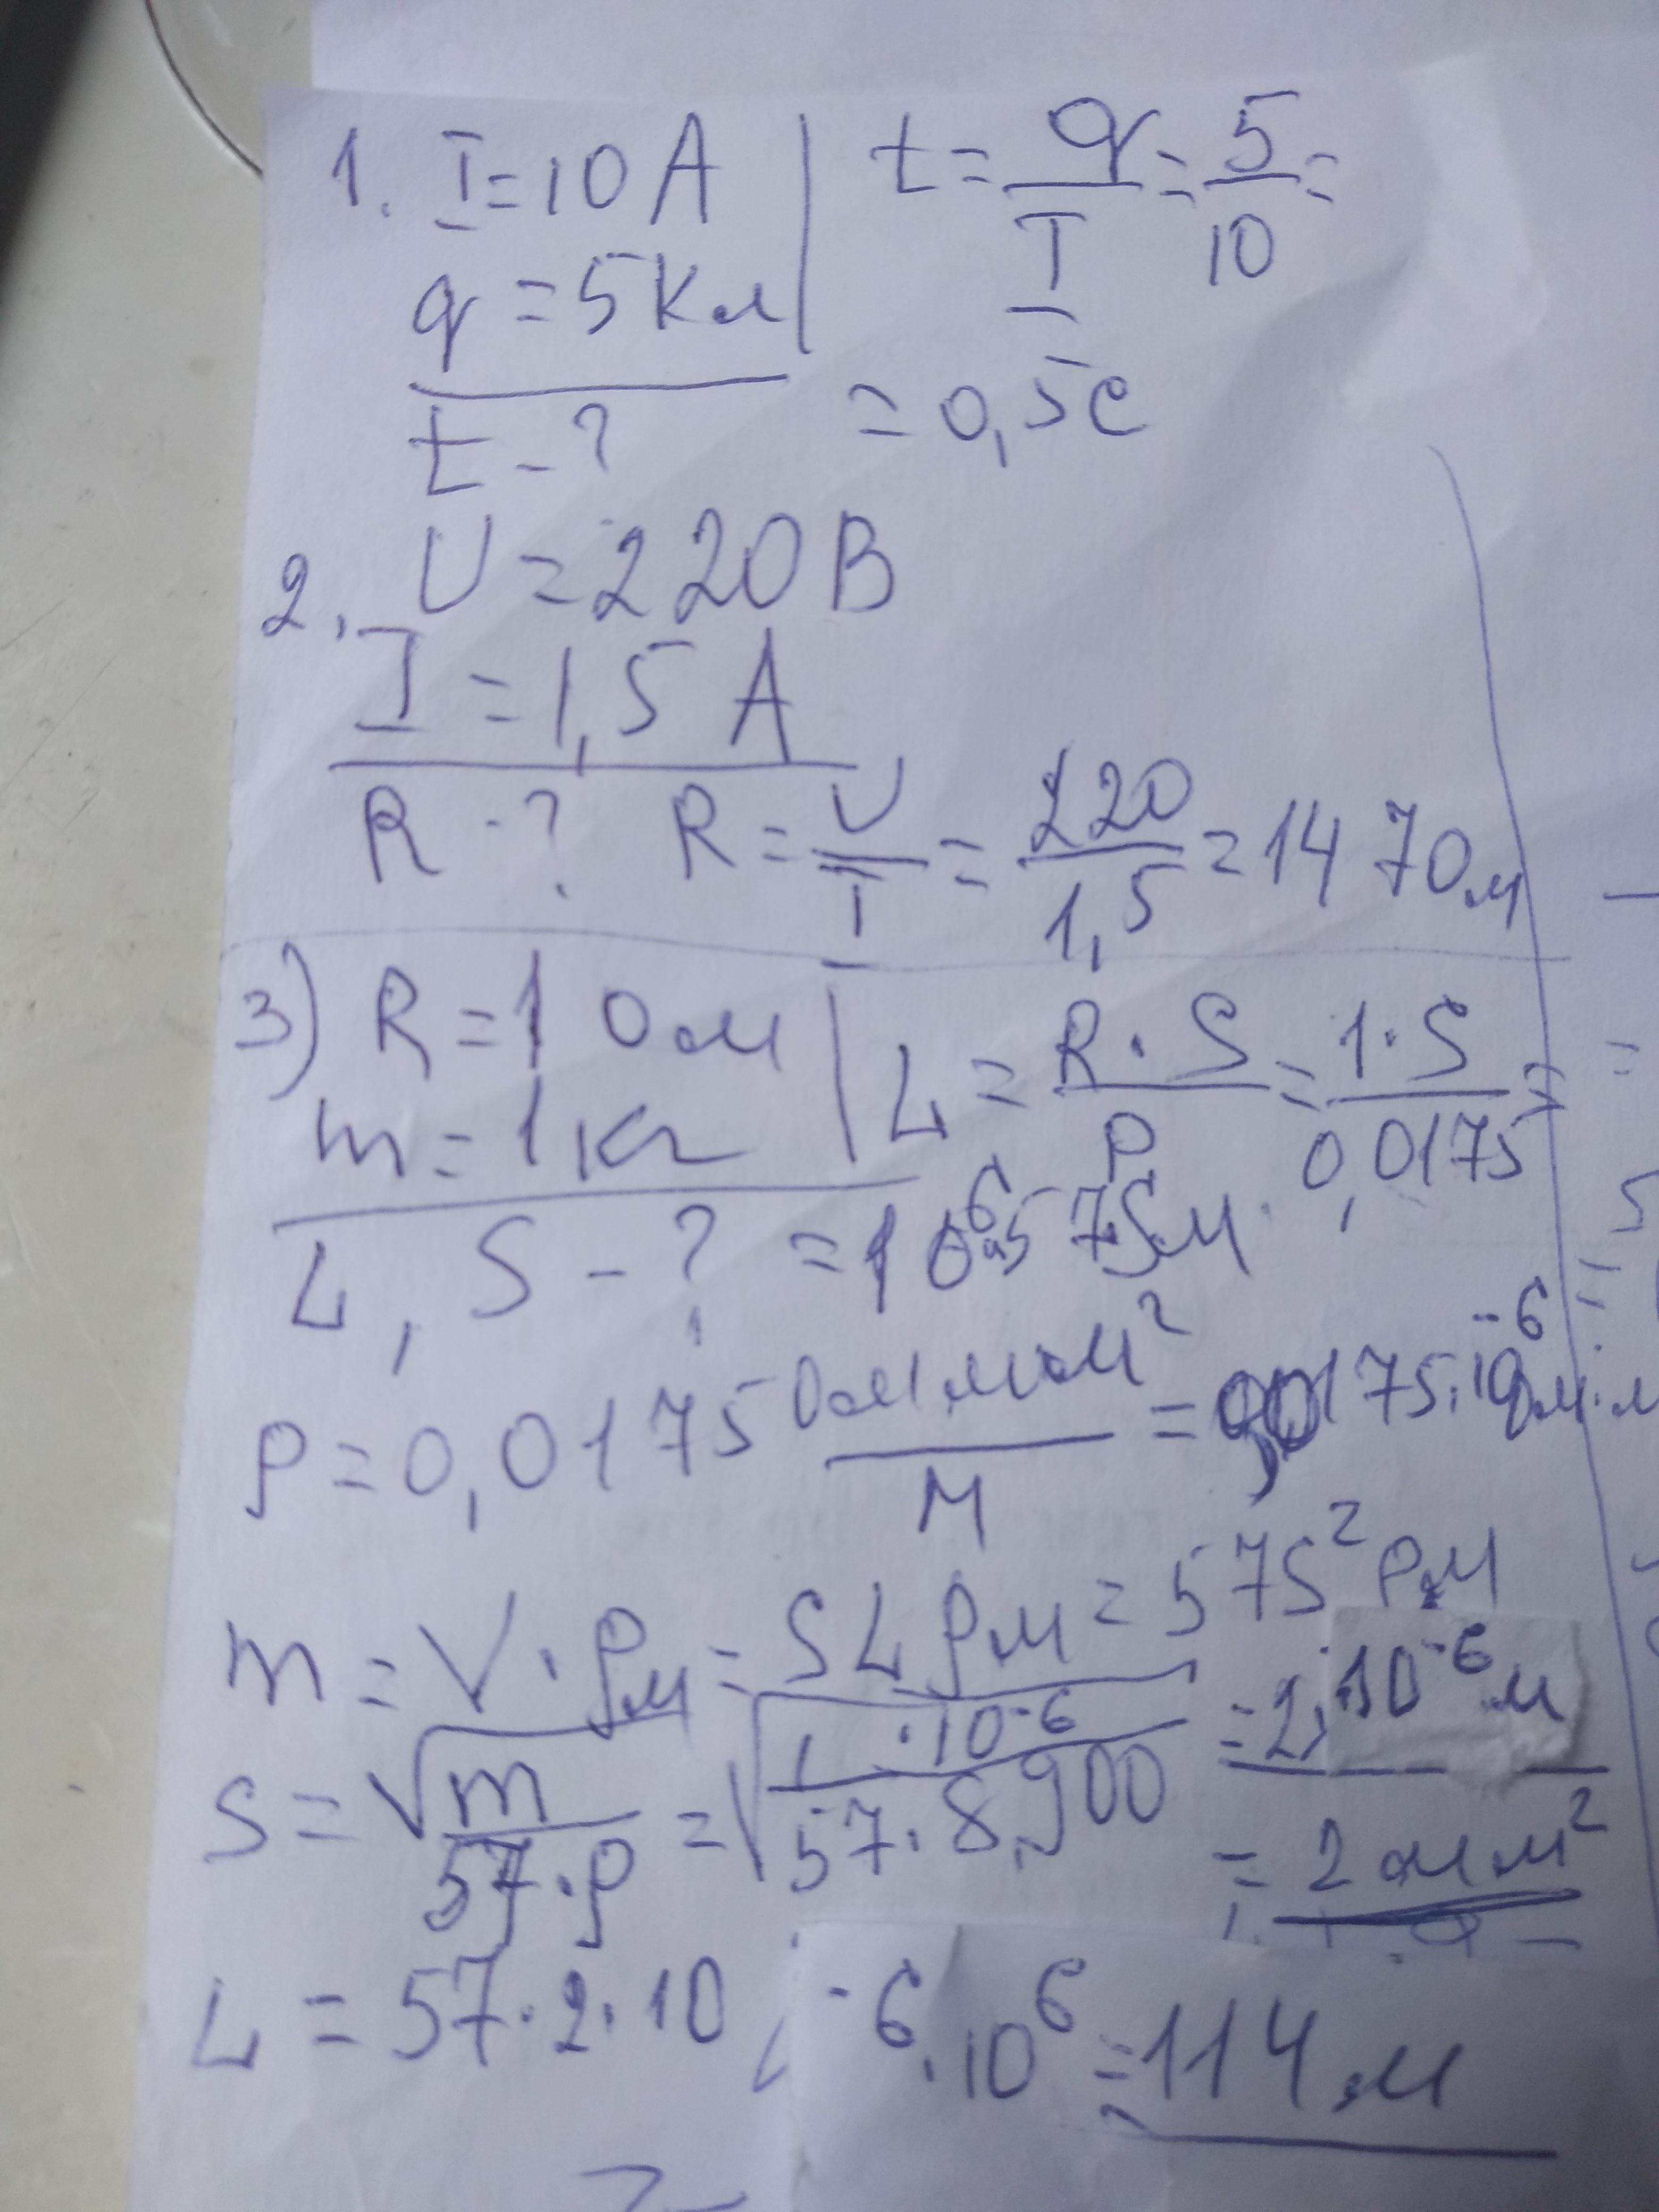 1. I=10 A | t= q/I = 5/10 =
q=5Кл
t-? = 0,5с
2. U=220В
I=1,5 А
R-? R= U/I = 220/1,5 =147Ом
3) R=1 Ом | L= R·S/ρ = 1·S/0,0175 =
m=1кг
L, S-? =10⁶·57Sм
ρ=0,0175 Ом·мм²/м = 0,0175·10⁻⁶ Ом·м
m=V·ρм=SLρм=57S²ρм
S=√(m/57·ρ) =√(1·10⁻⁶/57·8,900) =2·10⁻⁶м
=2мм²
L=57·2·10⁻⁶·10⁶=114м